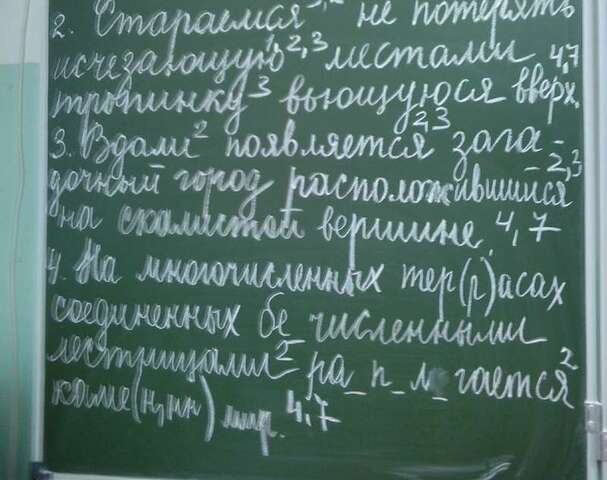 2. Стараемся 2 не потерять
исчезающую 2,3 местами 4,7
тропинку 3 вьющуюся вверх.
3. Вдали 2 появляется 2,3 зага-
дочный город расположившийся 2,3
на скалистой вершине. 4,7
4. На многочисленных тер(р)асах
соединенных бе численными
лестницами 2 ра_п_л_гается 2
каме(н,нн) мир. 4,7